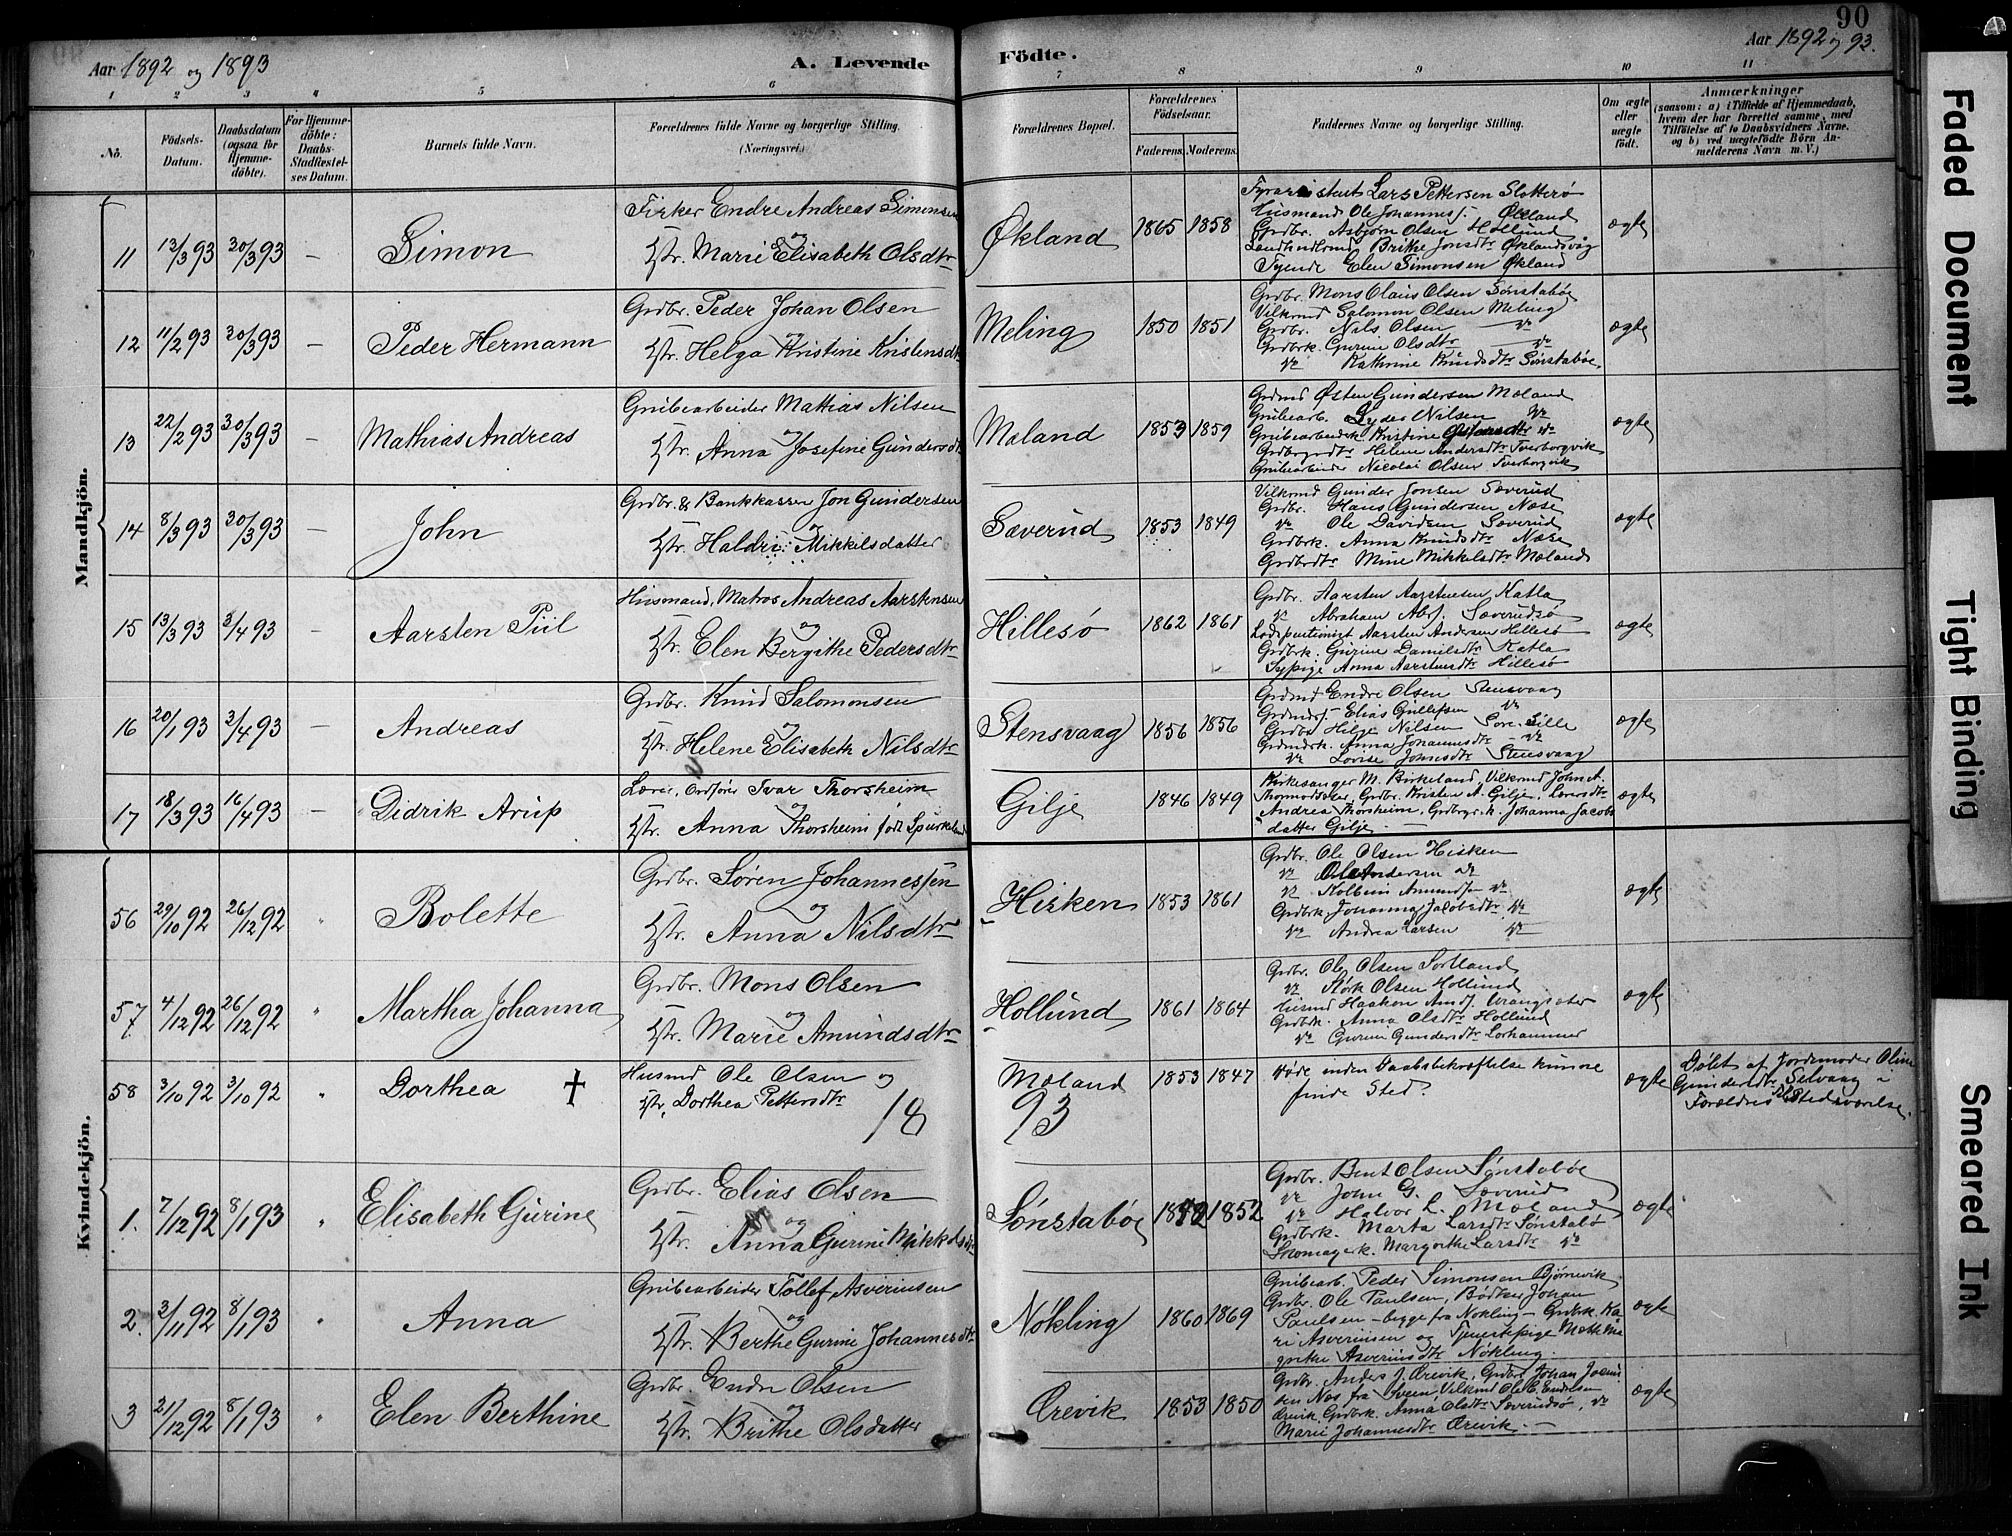 90
Aar 1892 og 1893
A. Levende Födte.
Aar 1892 og 93.
1 2 3 4 5 6 7 8 9 10 11
No.
Födsels-Datum.
Daabsdatum (ogsaa for Hjemmedöbte).
For Hjemmedöbte: Daabs-Stadfæstelses Datum.
Barnets fulde Navn.
Forældrenes fulde Navne og borgerlige Stilling.
(Næringsvei.)
Forældrenes Bopæl.
Forældrenes Födselsaar.
Faderens. Moderens.
Faddernes Navne og borgerlige Stilling.
Om ægte eller uægte födt.
Anmærkninger
(saasom: a) i Tilfælde af Hjemmedaab, hvem der har forrettet samme, med Tilföielse af to Daabsvidners Navne, og b) ved uægtefödte Börn Anmelderens Navn m. V.)
Mandkjön.
11 12/3 93 30/3 93 — Simon
Fisker Endre Andreas Simonsen
og
Hstr. Marie Elisabeth Olsdtr
Økland 1865 1858
Lars Pettersen Slatterø
Husmand Ole Johannesf. Økland
Grdbr. Asbjørn Olsen Hollund
Brithe Jonsdtr Øklandsvåg
Tyende Elen Simonsen Økland
ægte
12 11/2 93 30/3 93 — Peder Hermann
Grdbr. Peder Johan Olsen
og
Hstr. Helga Kristine Kristensdtr
Meling 1850 1851
Grdbr. Mons Claus Olsen Sønstabøe
Vilkrmd Salomon Olsen Meling
Grdbr. Nils Olsen do
Grdbrk. Gurine Olsdtr do
do Kathrine Knudsdtr Sønstabøe
ægte
13 22/2 93 30/3 93 — Mathias Andreas
Grubearbeider Mattias Nilsen
og
Hstr. Anna Josefine Gundersdtr
Moland 1853 1859
Grdmd Østen Gundersen Moland
Grubearb. Lyder Nilsen do
Grubearbeidk Kristine do
Helene Andersdtr Tverborgvik
Grubearbeider Nicolai Olsen Tverborgvik
ægte
14 8/3 93 30/3 93 — John
Grdbr. & Bankkasser Jon Gundersen
og
Hstr. Haldri Mikkilsdatter
Sæverud 1853 1849
Vilkrmd Gunder Jonsen Sæverud
Grdbr. Hans Gundersen Næse
do Ole Davidsen Sæverud
Grdbrk. Anna Knudsdtr Næse
Grdbrdtr Mine Mikkelsdtr Moland
ægte
15 13/3 93 3/4 93 — Aarsten Piil
Husmand, Matros Andreas Aarstensen
og
Hstr. Elen Bergithe Pedersdtr
Hillesø 1862 1861
Grdbr. Aarsten Aarstensen Katla
do Abraham Abr. Sæverudsø
Aarsten Andersen Hillesø
Grdbrk. Gurine Danielsdtr Katla
Sypige Anna Aarstensdtr Hillesø
ægte
16 20/1 93 3/4 93 — Andreas
Grdbr. Knud Salomonsen
og
Hstr. Helene Elisabeth Nilsdtr
Stensvaag 1856 1856
Grdmd Endre Olsen Stensvaag
Elias Gullefsen do
Grdbr Helje Nilsen Sore-Lille
Grdmdrk. Anna Johannesdtr do
do Lovise Johnsdtr Stensvaag
ægte
17 18/3 93 16/4 93 — Didrik Arup
Lærer, Ordfører Ivar Thorsheim
og
Hstr. Anna Thorsheim født Spurkeland
Gilje 1846 1849
Kirkesanger M. Birkeland, Vilkrmd John A.
Grdbr. Kristen A. Gilje, Lærersdtr
Andrea Thorsheim, Johanna Jacobs
datter Gilje
ægte
Kvindekjön.
56 29/10 92 26/12 92 " Bolette
Grdbr. Søren Johannessen
og
Hstr. Anna Nilsdtr
Hisken 1853 1861
Grdbr. Ole Olsen Hisken
do Ole Andersen do
do Kolbein Amundsen do
Grdbrk. Johanna Jacobsdtr do
do Andrea Larsen do
ægte
57 4/12 92 26/12 92 " Martha Johanna
Grdbr. Mons Olsen
og
Hstr. Marie Amundsdtr
Hollund 1861 1864
Grdbr. Ole Olsen Sortland
do Støk Olsen Hollund
Husmd Haakon Amdf. Vrangsæter
Grdbrk. Anna Olsdtr Hollund
do Gurine Gundersdtr Lorhammer
ægte
58 3/10 92 3/10 92 " Dorthea †
Husmd Ole Olsen og
Hstr. Dorthea Pettersdtr
Moland 1853 1847
Døde inden Daabsbekræftelse kunne
finde Sted.
ægte
Døbt af Jordemoder Oline
Gundersdtr Selvaag i
Forældres Nærværelse.
18 93
1. 7/12 92 8/1 93 " Elisabeth Gurine
Grdbr. Elias Olsen
og
Hstr. Anna Gurine Mikkelsdtr
Sønstabøe 1852
Grdbr. Bent Olsen Sønstabøe
do John G. Sæverud
do Halvor L. Moland
Grdbrk. Marta Larsdtr Sønstabø
Skomagerk. Margrethe Larsdtr do
ægte
2. 3/11 92 8/1 93 " Anna
Grubearbeider Tollef Asverinsen
og
Hstr. Berthe Gurine Johannesdtr
Nøkling 1860 1869
Grubearb. Peder Simonsen Bjørnevik
Grdbr. Ole Paulsen, Bødker Johan
Paulsen — begge fra Nøkling — Grdbrk. Ka
ri Asverinsen og Tjenestepige Mette Ma
grethe Asverinsdtr Nøkling.
ægte
3 21/12 92 8/1 93 " Elen Berthine
Grdbr. Endre Olsen
og
Hstr. Brithe Olsdatter
Ørevik 1853 1850
Grdbr. Anders J. Ørevik, Johan Jacob
sen Nos fra Sveen, Vilkmd Ole E. Endresen
Ørevik, Grdbrk. Anna Olsdtr Sæverudsø, do
Marie Johannesdtr Ørevik. —
ægte
Faded Document
Tight Binding
Smeared Ink